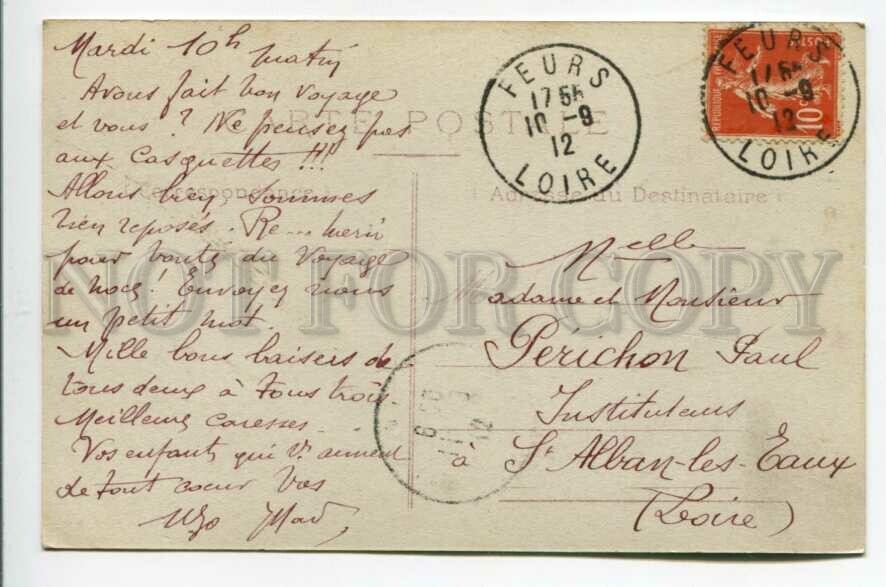 Mardi 10h matin
Avons fait bon voyage
et vous ? Ne pensez pas
aux Casquettes !!!
Allons bien, sommes
bien reposés. Re...merci
pour bouts du Voyage
de noce! Envoyez nous
un petit mot.
Mille bons baisers de
tous deux à tous trois.
Meilleures caresses
Vos enfants qui v. aiment
de tout coeur Vos
CARTE POSTALE
Correspondance
Adresse du Destinataire
FEURS
17 55
10 - 9
12
LOIRE
FEURS
17 55
10 - 9
12
LOIRE
REPUBLIQUE
POSTES
10
Nelle
Madame et Monsieur
Périchon Paul
Instituteurs
à St Alban-les-Eaux
(Loire)
NOT FOR COPY